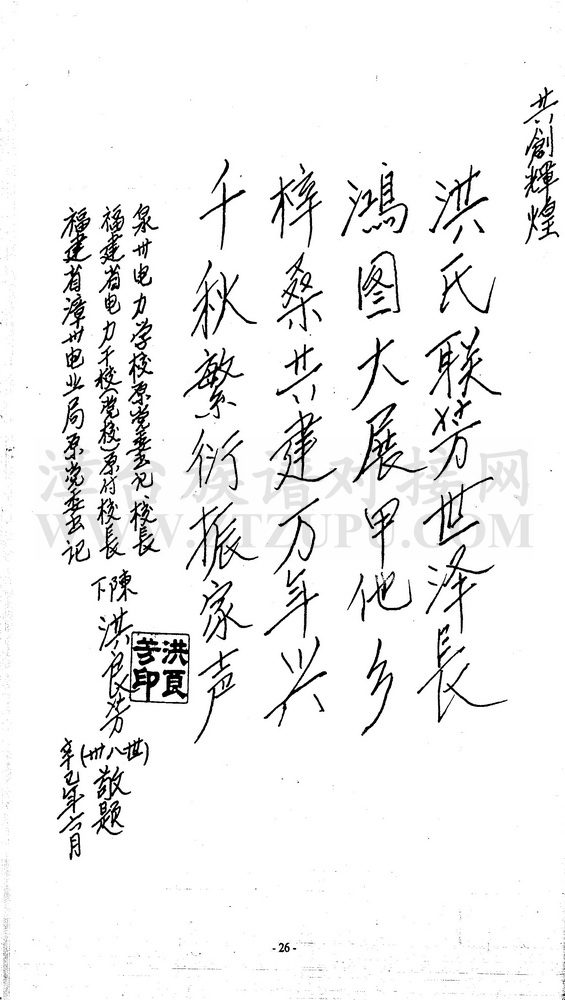 共創輝煌
洪氏联芳世泽長
鴻图大展甲他乡
梓桑共建万年兴
千秋繁衍振家声
泉卅电力学校原党委书记、校長
福建省电力干校(党校)原付校長
福建省漳卅电业局原党委书记
下陳 洪良芳
(卅八世)敬题
辛巳年六月
洪良芳印
漳台族谱对接网
WWW.ZTZUPU.COM
- 26 -